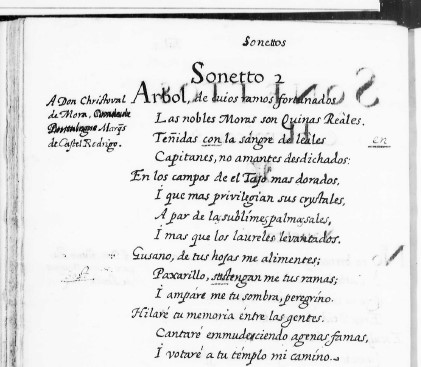 Sonettos
Sonetto 2
A Don Christoval
de Mora,
Marq̃s
de Castel Rodrigo.
Arbol, de cuios ramos fortunados
Las nobles Moras son Quinas Reales.
Teñidas con la sangre de leales
en
Capitanes, no amantes desdichados:
En los campos de el Tajo mas dorados,
I que mas privilegian sus crystales,
A par de las sublimes palmas sales,
I mas que los laureles levantados.
Gusano, de tus hojas me alimentes;
Paxarillo, sustengan me tus ramas;
I ampáre me tu sombra, peregrino.
Hilaré tu memoria entre las gentes.
Cantaré enmudeciendo agenas famas,
I votaré a tu témplo mi camino.